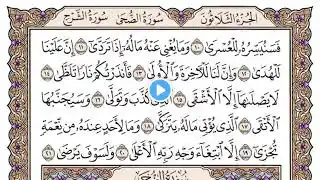 الجزء الثلاثون سورة الضحى سورة الشرح
فَسَنُيَسِّرُهُۥ لِلْعُسْرَىٰ ١٠ وَمَا يُغْنِى عَنْهُ مَالُهُۥٓ إِذَا تَرَدَّىٰٓ ١١ إِنَّ عَلَيْنَا
لَلْهُدَىٰ ١٢ وَإِنَّ لَنَا لَلْـَٔاخِرَةَ وَٱلْأُولَىٰ ١٣ فَأَنذَرْتُكُمْ نَارًا تَلَظَّىٰ ١٤
لَا يَصْلَىٰهَآ إِلَّا ٱلْأَشْقَى ١٥ كَذَّبَ وَتَوَلَّىٰ ١٦ وَسَيُجَنَّبُهَا
ٱلْأَتْقَى ١٧ ٱلَّذِى يُؤْتِى مَالَهُۥ يَتَزَكَّىٰ ١٨ وَمَا لِأَحَدٍ عِندَهُۥ مِن نِّعْمَةٍ
تُجْزَىٰٓ ١٩ إِلَّا ٱبْتِغَآءَ وَجْهِ رَبِّهِ ٱلْأَعْلَىٰ ٢٠ وَلَسَوْفَ يَرْضَىٰ ٢١